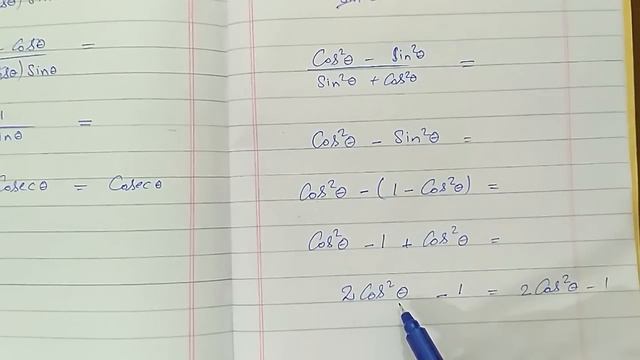 - Cosθ =
Sinθ
1 =
Cosecθ = Cosecθ
Cos²θ - Sin²θ =
Sin²θ + Cos²θ
Cos²θ - Sin²θ =
Cos²θ - (1 - Cos²θ) =
Cos²θ - 1 + Cos²θ =
2Cos²θ - 1 = 2Cos²θ - 1